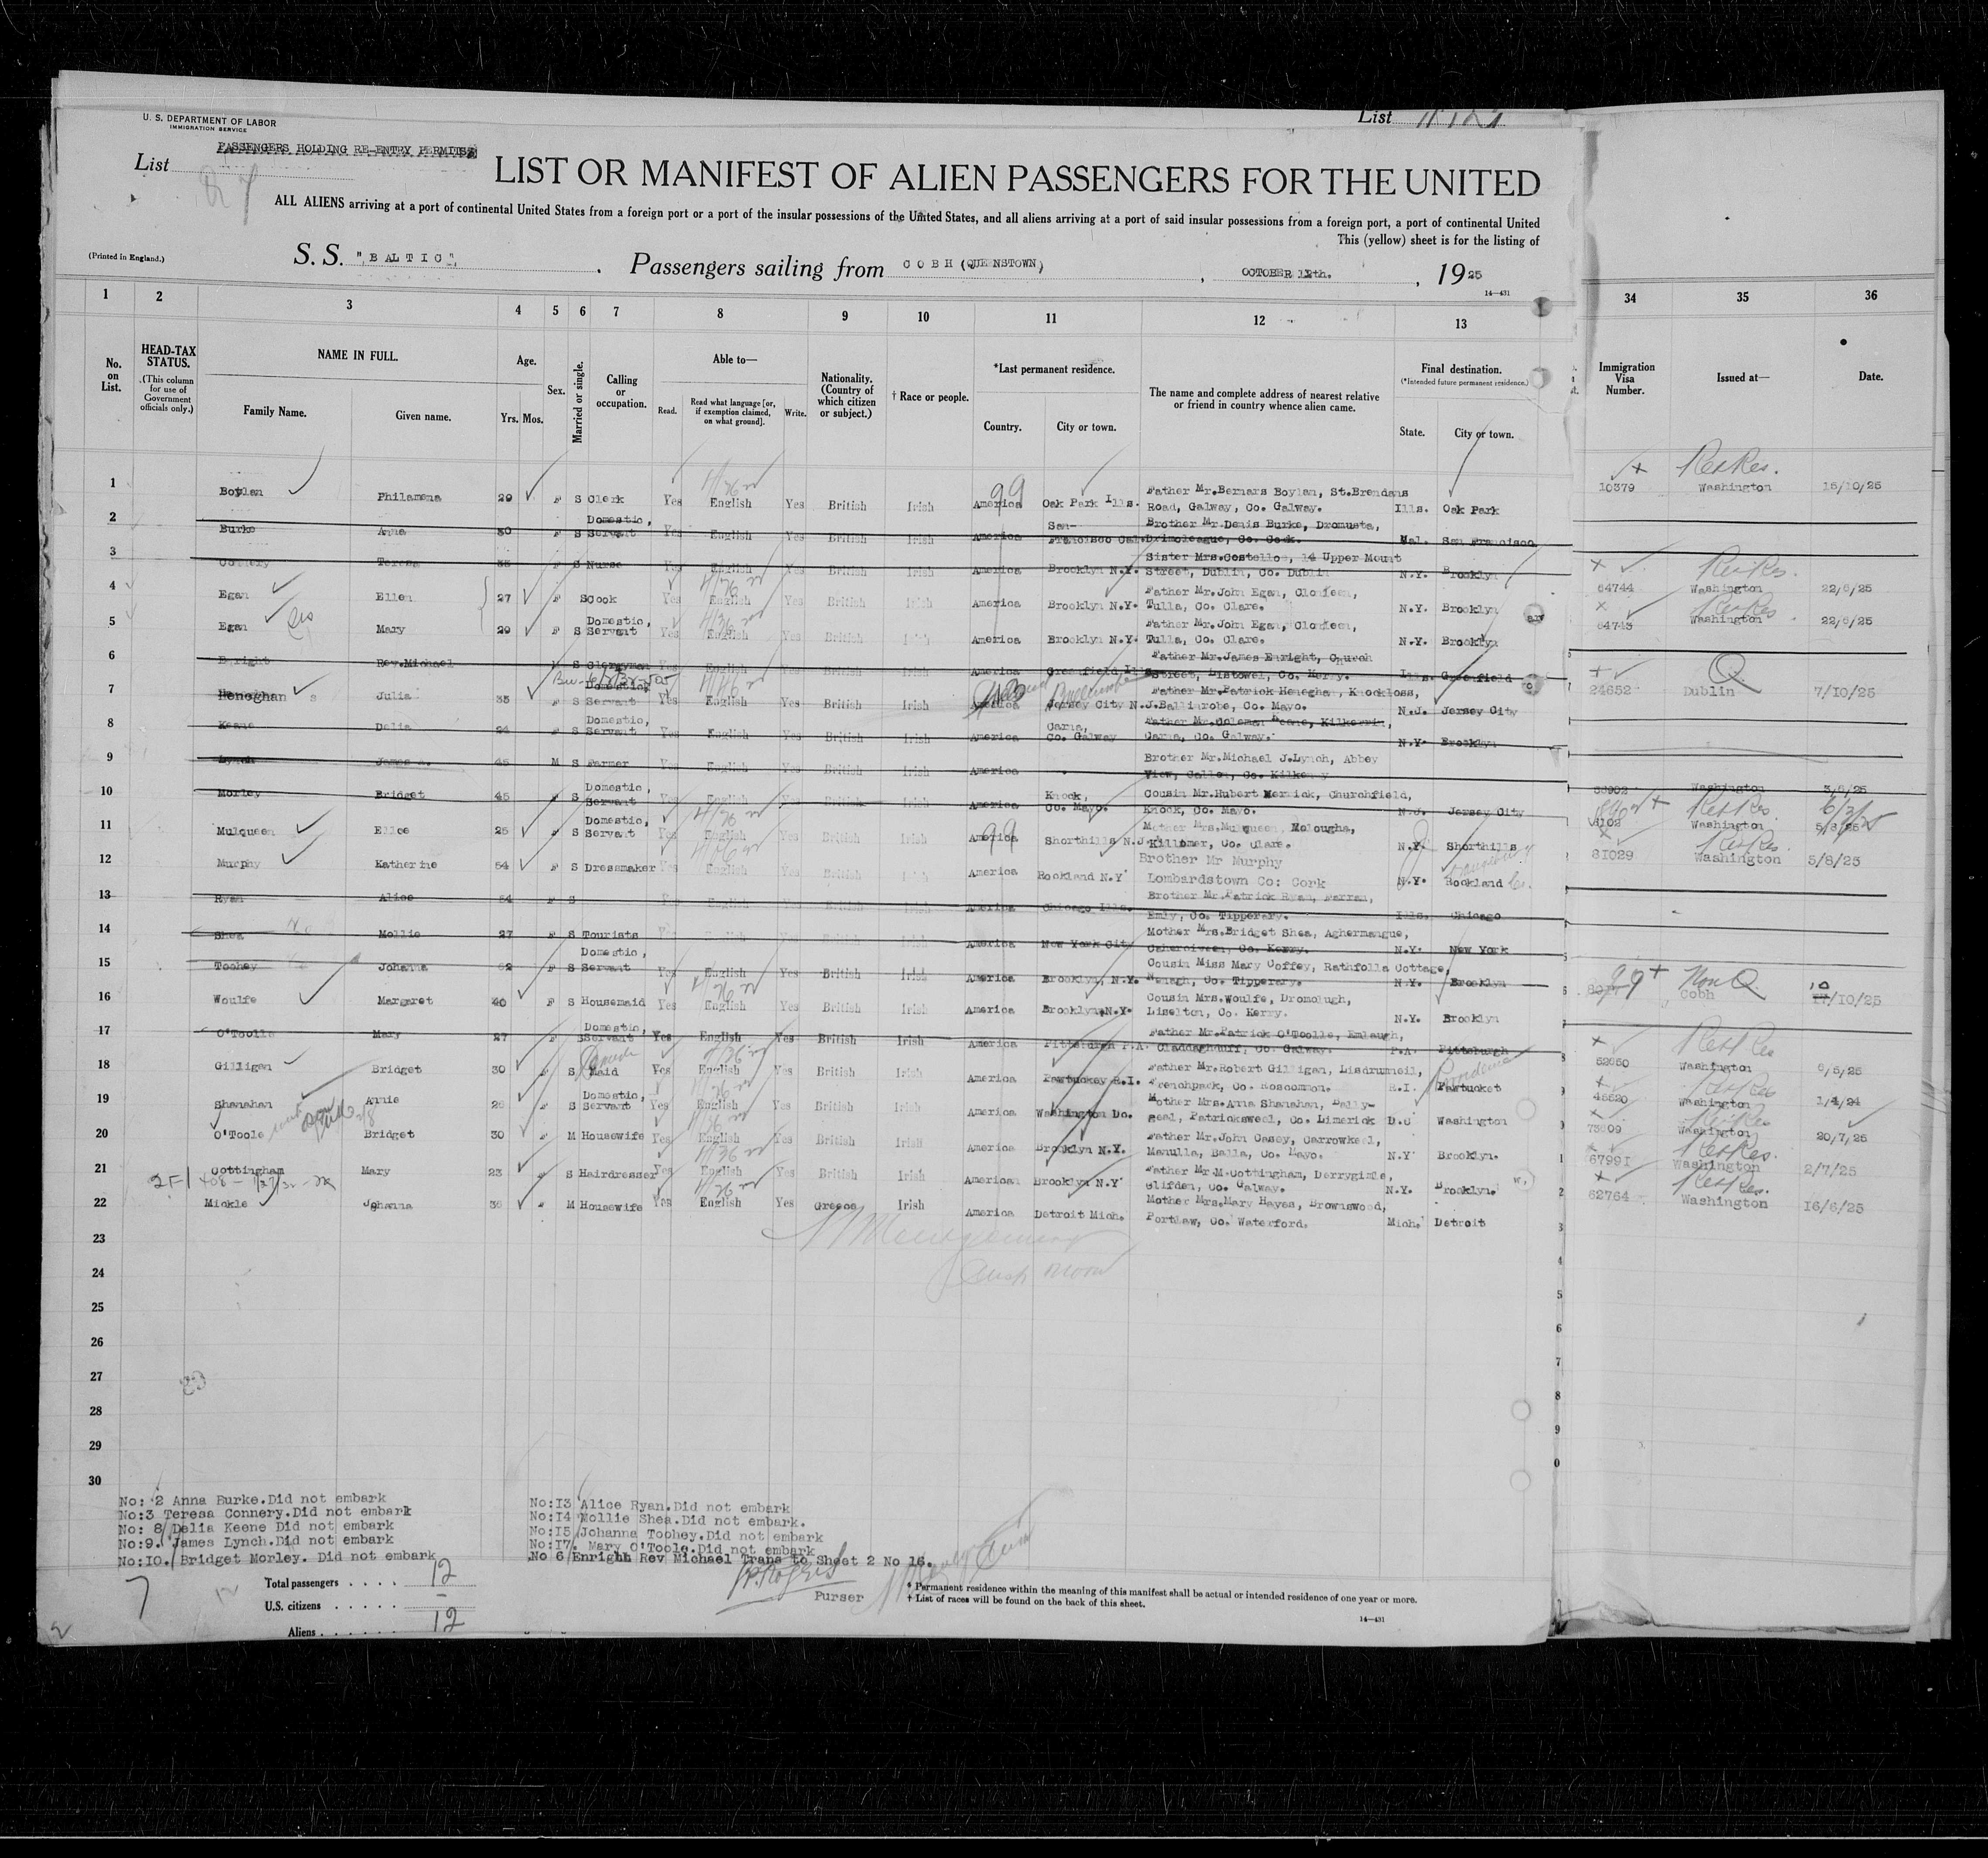 U. S. DEPARTMENT OF LABOR
IMMIGRATION SERVICE
List
PASSENGERS HOLDING RE-ENTRY PERMITS
List
LIST OR MANIFEST OF ALIEN PASSENGERS FOR THE UNITED
ALL ALIENS arriving at a port of continental United States from a foreign port or a port of the insular possessions of the United States, and all aliens arriving at a port of said insular possessions from a foreign port, a port of continental United
This (yellow) sheet is for the listing of
(Printed in England.)
S. S. "BALTIC", Passengers sailing from COBH (QUEENSTOWN), OCTOBER 12th., 1925
14—431
1 2 3 4 5 6 7 8 9 10 11 12 13 34 35 36
No. on List.
HEAD-TAX STATUS. (This column for use of Government officials only.)
NAME IN FULL. Family Name. Given name.
Age. Yrs. Mos.
Sex.
Married or single.
Calling or occupation.
Able to— Read. Read what language [or, if exemption claimed, on what ground]. Write.
Nationality. (Country of which citizen or subject.)
† Race or people.
*Last permanent residence. Country. City or town.
The name and complete address of nearest relative or friend in country whence alien came.
Final destination. (*Intended future permanent residence.) State. City or town.
Immigration Visa Number.
Issued at—
Date.
1 Boylan Philamena 29 F S Clerk Yes English Yes British Irish America Oak Park Ills. Father Mr.Bernars Boylan, St.Brendans Road, Galway, Co. Galway. Ills. Oak Park 10379 Washington 15/10/25
2 Burke Anna 30 F S Domestic, Servant Yes English Yes British Irish America San-Francisco Cal. Brother Mr.Denis Burke, Dromusta, Drimoleague, Co. Cork. Cal. San Francisco
3 Connery Teresa 35 F S Nurse Yes English Yes British Irish America Brooklyn N.Y. Sister Mrs.Costelloe, 14 Upper Mount Street, Dublin, Co. Dublin N.Y. Brooklyn
4 Egan Ellen 27 F S Cook Yes English Yes British Irish America Brooklyn N.Y. Father Mr.John Egan, Clonfeen, Tulla, Co. Clare. N.Y. Brooklyn 64744 Washington 22/6/25
5 Egan Mary 29 F S Domestic, Servant Yes English Yes British Irish America Brooklyn N.Y. Father Mr.John Egan, Clonfeen, Tulla, Co. Clare. N.Y. Brooklyn 64743 Washington 22/6/25
6 Enright Rev.Michael S Clergyman Yes English Yes British Irish America Greenfield Ills. Father Mr.James Enright, Church Street, Listowel, Co. Kerry. Ills. Greenfield
7 Heneghan Julia 35 F S Domestic, Servant Yes English Yes British Irish America Jersey City N.J. Father Mr.Patrick Heneghan, Knockloss, Ballinrobe, Co. Mayo. N.J. Jersey City 24652 Dublin 7/10/25
8 Keane Delia 24 F S Domestic, Servant Yes English Yes British Irish America Carna, Co. Galway Father Mr.Coleman Keane, Kilkerrin, Carna, Co. Galway. N.Y. Brooklyn
9 Lynch James A. 45 M S Farmer Yes English Yes British Irish America Brother Mr.Michael J.Lynch, Abbey View, Callon, Co. Kilkenny
10 Morley Bridget 45 F S Domestic, Servant Yes English Yes British Irish America Knock, Co. Mayo. Cousin Mr.Hubert Merrick, Churchfield, Knock, Co. Mayo. N.J. Jersey City Washington 3/6/25
11 Mulqueen Ellce 25 F S Domestic, Servant Yes English Yes British Irish America Shorthills N.J. Mother Mrs.Mulqueen, Molougha, Killomer, Co. Clare. N.Y. Shorthills Washington
12 Murphy Katherine 54 F S Dressmaker Yes English Yes British Irish America Rockland N.Y Brother Mr Murphy Lombardstown Co: Cork N.Y. Rockland 81029 Washington 5/8/25
13 Ryan Alice 54 F S English British Irish America Chicago Ills. Brother Mr.Patrick Ryan, Farran, Emly, Co. Tipperary. Ills. Chicago
14 Shea Mollie 27 F S Tourists British Irish America New York City Mother Mrs.Bridget Shea, Aghermangue, Caherciveen, Co. Kerry. N.Y. New York
15 Toohey Johanna 62 F S Domestic, Servant Yes English Yes British Irish America Brooklyn, N.Y. Cousin Miss Mary Coffey, Rathfolla Cottage, Nenagh, Co. Tipperary. N.Y. Brooklyn
16 Woulfe Margaret 40 F S Housemaid Yes English Yes British Irish America Brooklyn N.Y. Cousin Mrs.Woulfe, Dromolugh, Liselton, Co. Kerry. N.Y. Brooklyn Non Q Cobh 10/10/25
17 O'Toolle Mary 27 F S Domestic, Servant Yes English Yes British Irish America Pittsburgh P.A. Father Mr.Patrick O'Toolle, Emlaugh, Claddaghduff, Co. Galway. P.A. Pittsburgh
18 Gilligan Bridget 30 S Maid Yes English Yes British Irish America Pawtuckey R.I. Father Mr.Robert Gilligan, Lisdrumneil, Frenchpack, Co. Roscommon. R.I. Pawtucket Providence 52050 Washington 6/5/25
19 Shanahan Annie 26 S Domestic, Servant Yes English Yes British Irish America Washington Do. Mother Mrs.Anna Shanahan, Bally-geal, Patrickswell, Co. Limerick D.C Washington 46520 Washington 1/4/24
20 O'Toole Bridget 30 M Housewife Yes English Yes British Irish America Brooklyn N.Y. Father Mr.John Casey, Carrowkeel, Manulla, Balla, Co. Mayo. N.Y Brooklyn. 73609 Washington 20/7/25
21 Cottingham Mary 23 S Hairdresser Yes English Yes British Irish American Brooklyn N.Y Father Mr.M.Cottingham, Derrygimle, Clifden, Co. Galway. N.Y. Brooklyn. 67991 Washington 2/7/25
22 Mickle Johanna 36 M Housewife Yes English Yes Greece Irish America Detroit Mich. Mother Mrs.Mary Hayes, Brownswood, Portlaw, Co. Waterford. Mich. Detroit 62764 Washington 16/6/25
23
24
25
26
27
28
29
30
No: 2 Anna Burke.Did not embark
No:3 Teresa Connery.Did not embark
No: 8 Delia Keene Did not embark
No:9. James Lynch.Did not embark
No:10. Bridget Morley. Did not embark
No:13 Alice Ryan.Did not embark
No:14 Mollie Shea.Did not embark.
No:15 Johanna Toohey.Did not embark
No:17. Mary O'Toole.Did not embark
No 6 Enright Rev Michael Trans to Sheet 2 No 16.
Purser
Total passengers . . . . 12
U.S. citizens . . . . . –
Aliens . . . . . . 12
* Permanent residence within the meaning of this manifest shall be actual or intended residence of one year or more.
† List of races will be found on the back of this sheet.
14—431